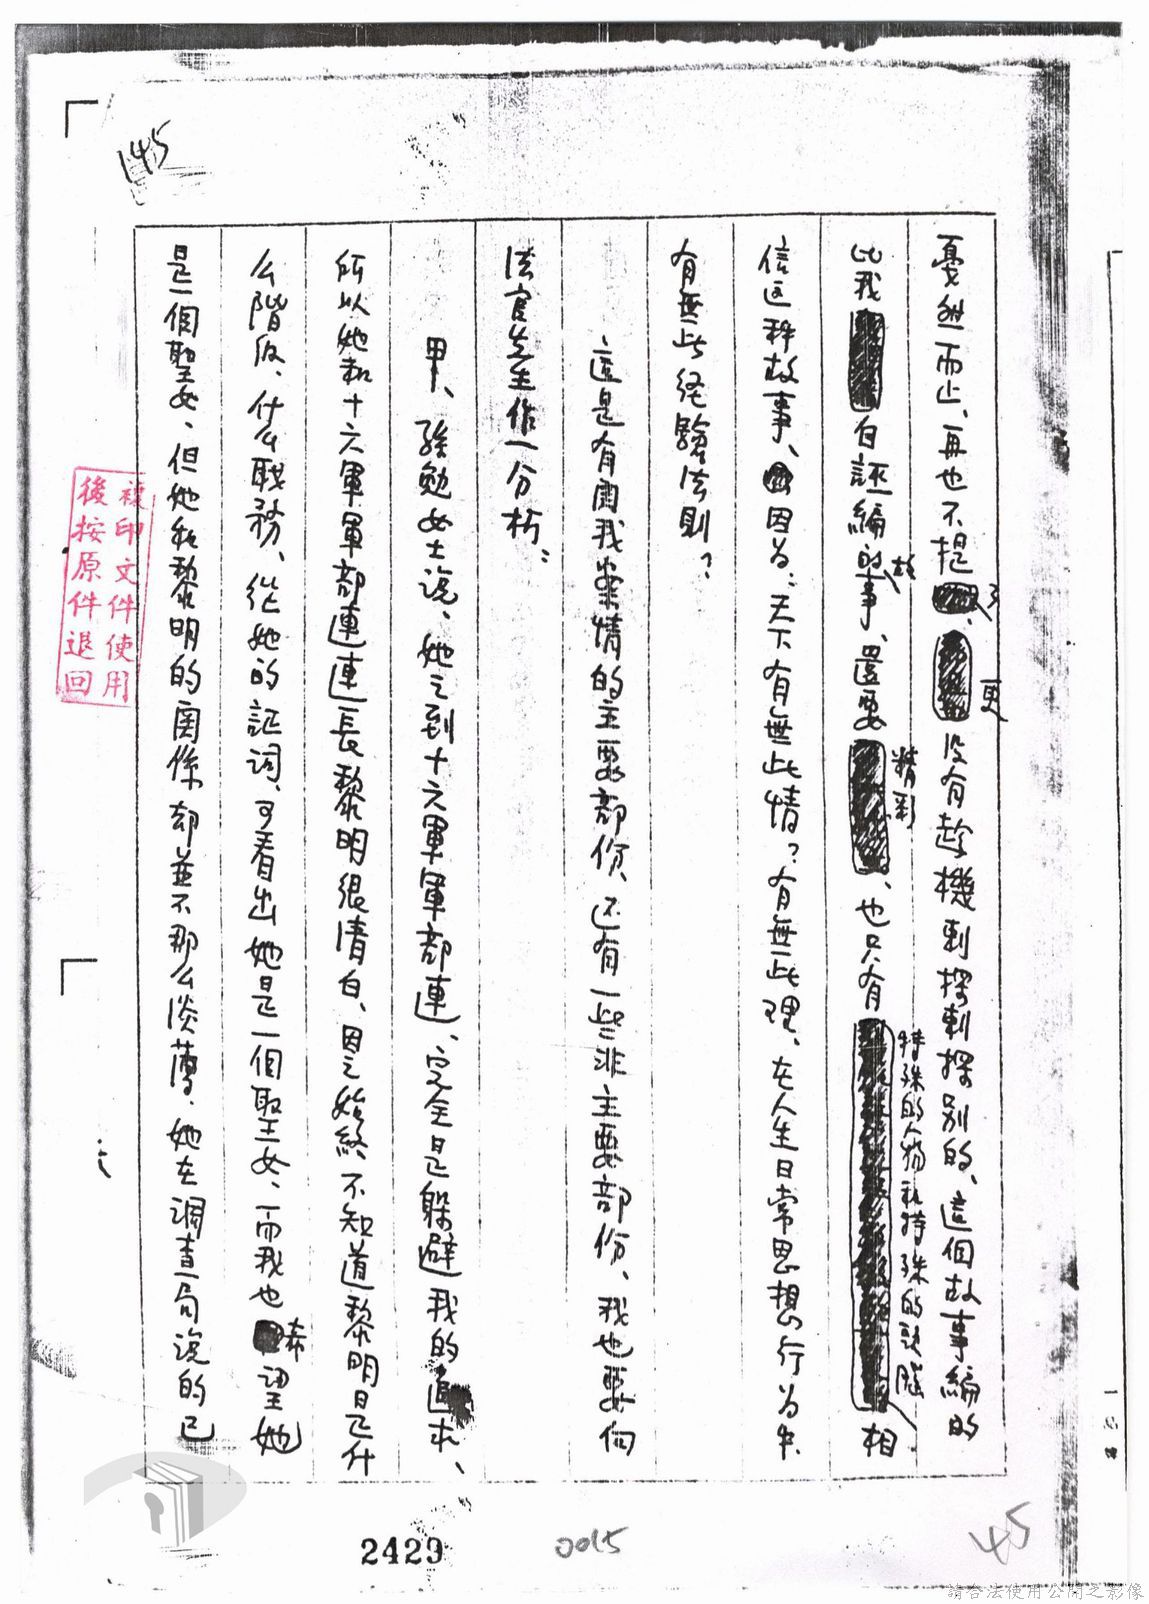 145
戛然而止、再也不提了、更沒有趁機刺探刺探別的、這個故事編的
比我自誣編的故事、還要精彩、也只有特殊的人物和特殊的頭腦相
信这种故事、因为：天下有無此情？有無此理、在人生日常思想行为中
有無此经驗法則？
這是有関我案情的主要部份、还有一些非主要部份、我也要向
法官先生作一分析：
甲、孫勉女士说、她之到十六軍軍部連、完全是躲避我的追求、
所以她和十六軍軍部連連長黎明很清白、因之始終不知道黎明是什
么階级、什么職務、從她的証词、可看出她是一個聖女、而我也希望她
是一個聖女、但她和黎明的関係却並不那么淡薄、她在調查局说的已
複印文件使用
後按原件退回
2429
0015
45
請合法使用公開之影像